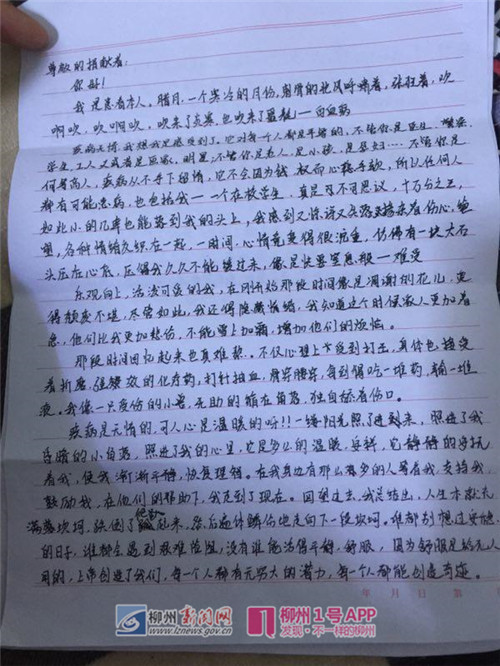 尊敬的捐献者：
你好！
我是患者本人。腊月，一个寒冷的月份，刺骨的北风呼啸着，张狂着，吹
啊吹，吹啊吹，吹来了灾害，也吹来了噩耗——白血病
疾病无情，我想我是感受到了。它对每个人都是平等的，不管你是医生、
学生、工人又或者是画家，明星；不管你是老人，是小孩，是孕妇……不管你是
何等高人，疾病从不手下留情，它不会因为钱、权而心慈手软，所以任何人
都有可能患病，也包括我——一个在校学生，真是可不可思议，十万分之三，
如此小的几率也能落到我的头上，我感到又惊讶又伤心，绝
望，各种情绪交织在一起，一时间，心情竟变得很沉重，仿佛有一块大石
头压在心底，压得我久久不能缓过来，像是快要窒息般一难受
乐观向上，活泼可爱的我，在刚开始那段时间像是凋谢的花儿，变
得颓废不堪，尽管如此，我还得隐藏情绪，我知道这个时候家人更加着
急，他们比我更加悲伤，不能雪上加霜，增加他们的烦恼。
那段时间回忆起来也真难熬。不仅心理上受到打击，身体也接受
着折磨，强效的化疗药，打针抽血，骨穿腰穿，每到铜吃一堆药，输一堆
液。我像一只受伤的小兽，无助的躺在角落，独自舔着伤口。
疾病是无情的，可人心是温暖的呀!!一缕阳光照了进来，照进了我
昏暗的小角落，照进了我的心里，它是多么的温暖，安祥，它静静的安抚
着我，使我渐渐平静，恢复理智。在我身边有那么多的人爱着我，支持我
鼓励我，在他们的帮助下，我走到了现在。回望过去，我总结出，人生本就充
满着坎坷，跌倒了爬起来，然后遍体鳞伤地走向下一段坎坷。谁都别想过安稳
的日子，谁都会遇到艰难险阻，没有谁能活得平静，舒服，因为舒服是给死人
用的，上帝创造了我们，每一个人都有无穷大的潜力，每一个人都能创造奇迹。
年 月 日 第
柳州新闻网
www.lznews.gov.cn
柳州1号APP
发现·不一样的柳州